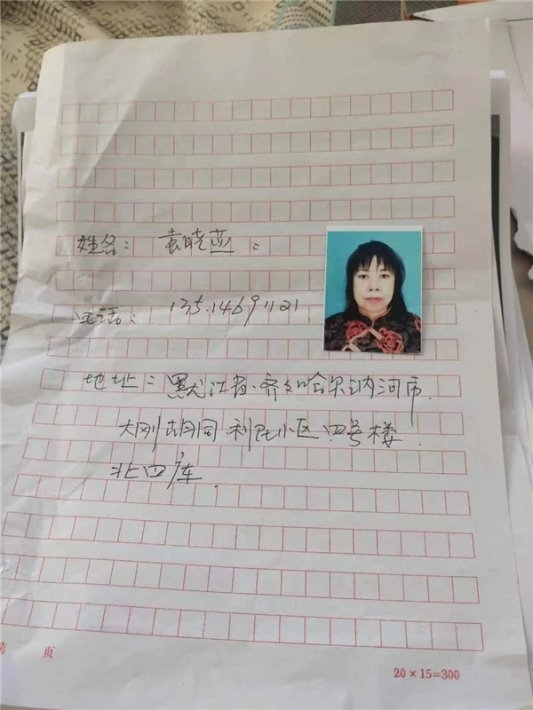 姓名：袁晓燕：
电话：135.1469 1121
地址：黑龙江省.齐齐哈尔讷河市.
大刚胡同.利民小区.四号楼.
北四库.
页
20×15=300